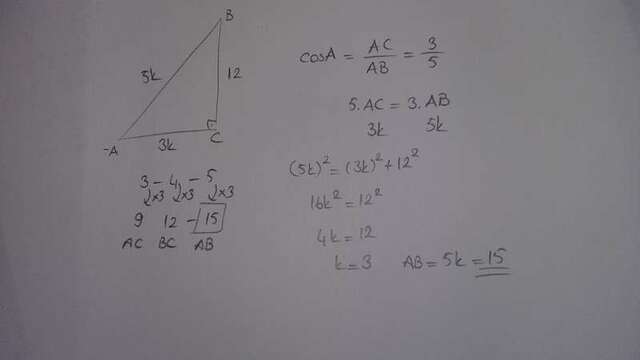 A
B
C
5k
3k
12
3 - 4 - 5
↓x3 ↓x3 ↓x3
9 12 - 15
AC BC AB
cosA = AC/AB = 3/5
5.AC = 3.AB
3k 5k
(5k)² = (3k)² + 12²
16k² = 12²
4k = 12
k = 3 AB = 5k = 15